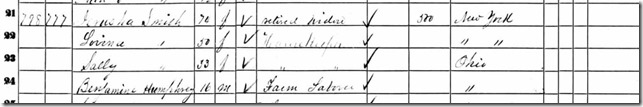 91 778 777 Jerusha Smith 70 f ✓ retired widow ✓ 500 New York
92 Lovina " 50 f ✓ Housekeeper ✓ " "
93 Sally " 33 f ✓ " " ✓ Ohio
94 Benjamine Humphrey 16 m ✓ Farm Laborer ✓ " "